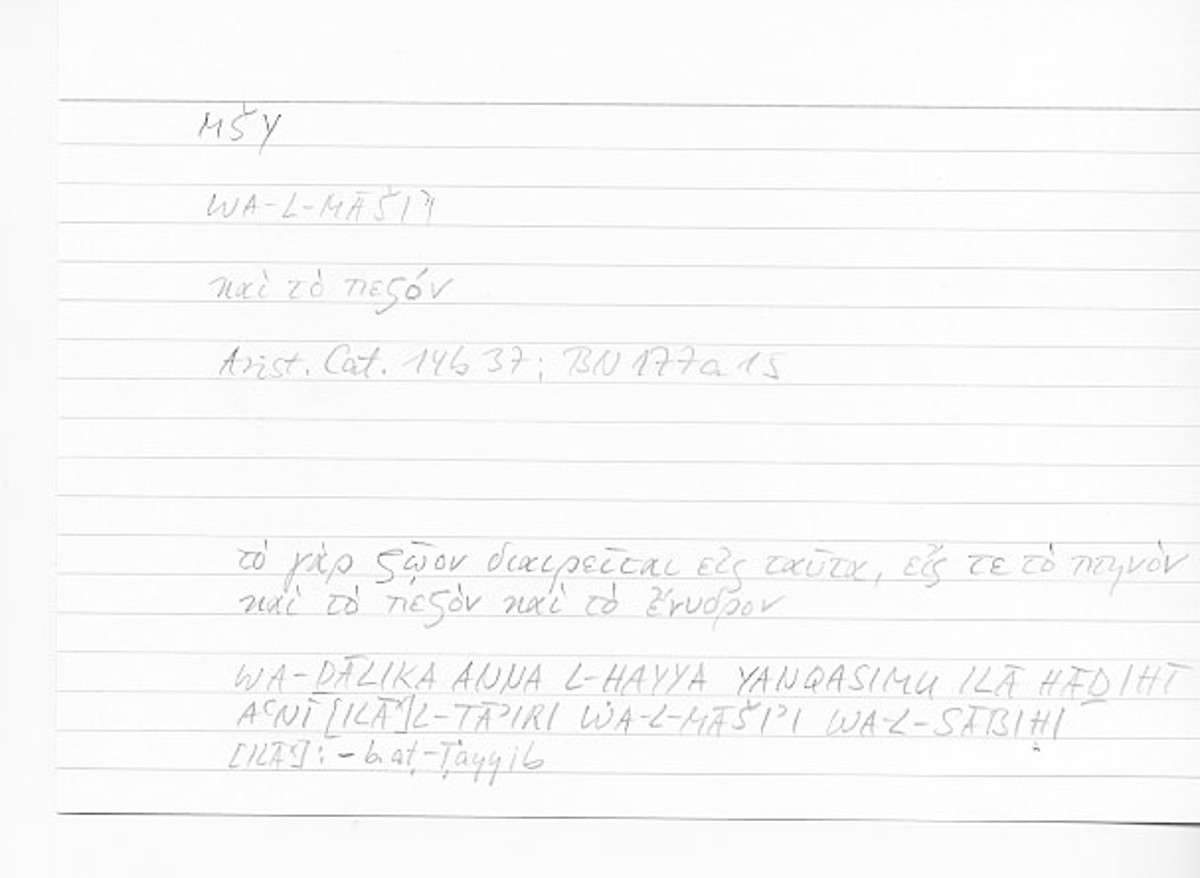 MŠY
WA-L-MĀŠIʾI
καὶ τὸ πεζόν
Arist. Cat. 14b 37; BN 177a 15
τὸ γὰρ ζῷον διαιρεῖται εἰς ταῦτα, εἴς τε τὸ πτηνὸν
καὶ τὸ πεζὸν καὶ τὸ ἔνυδρον
WA-ḎĀLIKA ANNA L-HAYYA YANQASIMU ILĀ HĀḎIHĪ
AʿNĪ [ILĀ] L-TĀʾIRI WA-L-MĀŠIʾI WA-L-SĀBIḤI
[ILĀ]: – b. aṭ-Ṭayyib